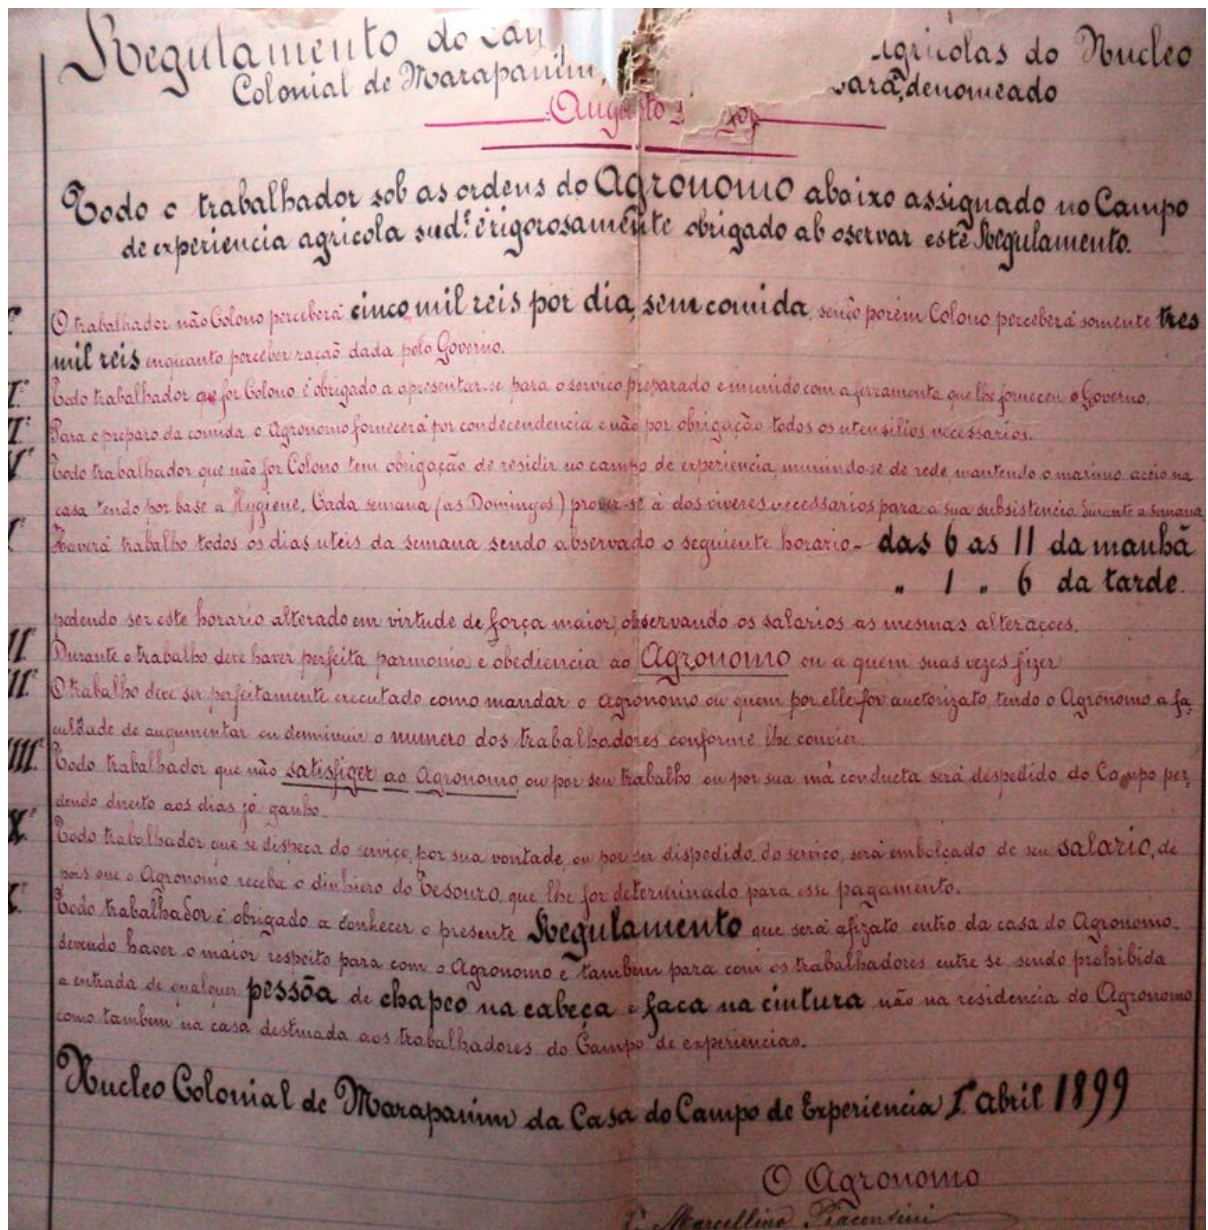 Regulamento do Cam agricolas do Nucleo
Colonial de Marapanim, Pará, denomeado
Augusto
Todo o trabalhador sob as ordens do Agronomo abaixo assignado no Campo
de experiencia agricola sud.º é rigorosamente obrigado ab oservar este Regulamento.
O trabalhador não Colono perceberá cinco mil reis por dia, sem comida, senão porém Colono perceberá somente tres
mil reis enquanto perceber ração dada pelo Governo.
I.º Todo trabalhador que for Colono é obrigado a apresentar-se para o servico preparado e munido com a ferramenta que lhe forneceu o Governo.
II.º Para o preparo da comida o Agronomo fornecerá por condecendencia e não por obrigação todos os utensilios necessarios.
V.º Todo trabalhador que não for Colono tem obrigação de residir no campo de experiencia, munindo-se de rede, mantendo o maximo aceio na
casa tendo por base a Hygiene. Cada semana (as Domingos) prover-se á dos viveres necessarios para a sua subsistencia durante a semana
Haverá trabalho todos os dias uteis da semana sendo observado o seguiente horario - das 6 as 11 da manhã
" 1 " 6 da tarde.
podendo ser este horario alterado em virtude de força maior, observando os salarios as mesmas alterações.
II. Durante o trabalho deve haver perfeita parmonia e obediencia ao Agronomo ou a quem suas vezes fizer
II.º O trabalho deve ser perfeitamente executado como mandar o Agronomo ou quem por elle for auctorizato, tendo o Agronomo a fa-
culdade de augumentar ou deminuir o numero dos trabalhadores conforme lhe convier.
III. Todo trabalhador que não satisfiger ao Agronomo, ou por seu trabalho ou por sua má conducta será despedido do Campo per-
dendo direito aos dias já ganho.
X.º Todo trabalhador que se dispeca do serviço, por sua vontade, ou por ser dispedido, do servico, será embolçado de seu salario, de
pois que o Agronomo receba o dinhiero do Tesouro, que lhe for determinado para esse pagamento.
X.º Todo trabalhador é obrigado a conhecer o presente Regulamento que será afizato entro da casa do Agronomo.
devendo haver o maior respeito para com o Agronomo e tambem para com os trabalhadores entre se, sendo prohibida
a entrada de qualquer pessõa de chapeo na cabeça e faca na cintura não na residencia do Agronomo
como tambem na casa destinada aos trabalhadores do Campo de experiencias.
Nucleo Colonial de Marapanim da Casa do Campo de Experiencia 1.º abril 1899
O Agronomo
Marcellino Piacentini